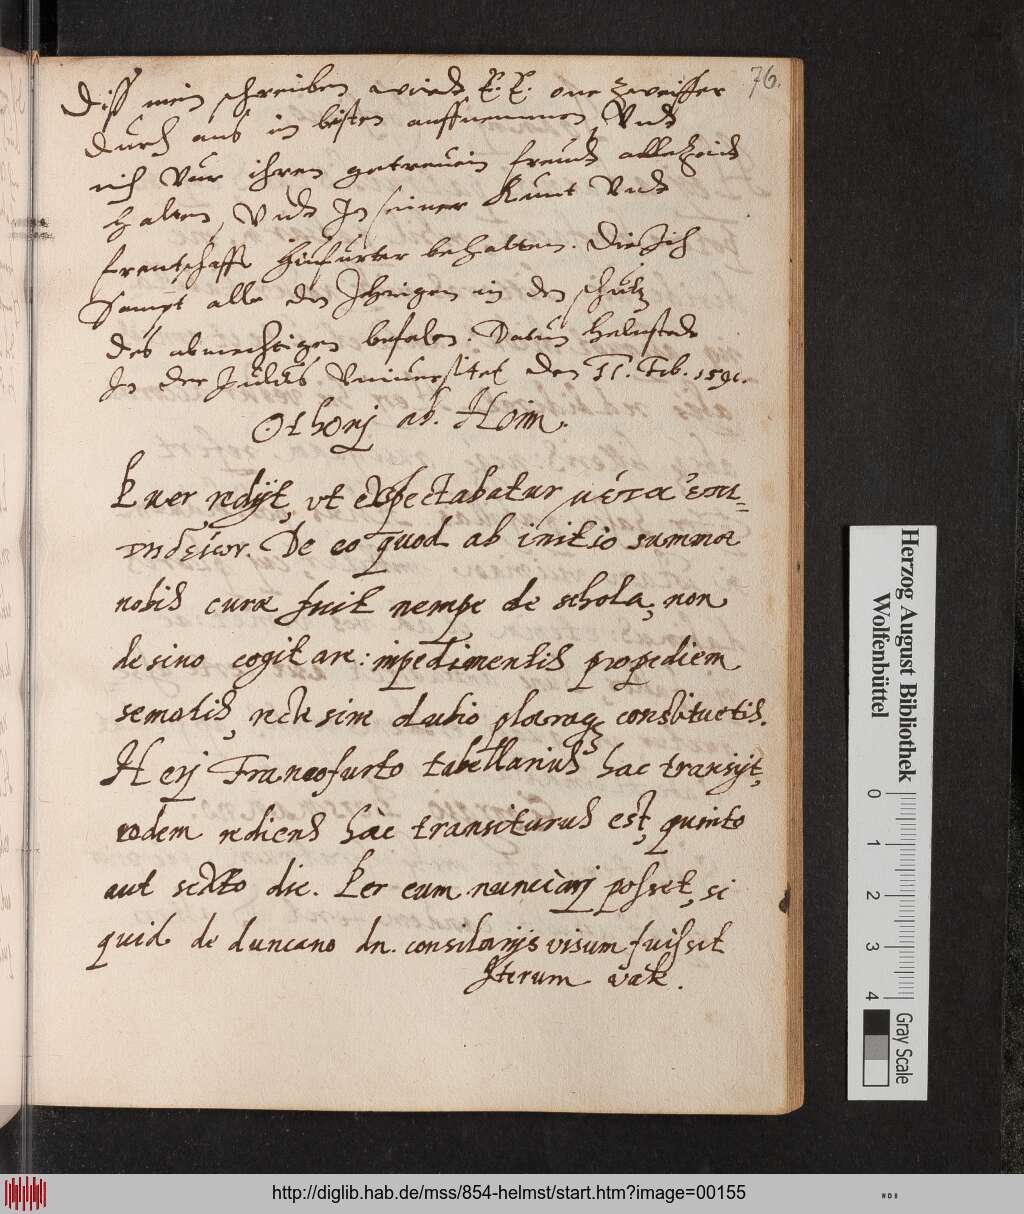 76.
Diss mein schreiben wirdt E. E. one zweiffer
durch aus im besten auffnemmen, Vndt
mich Vur ihren getreuen freundt allezeidt
halten, Vndt In seiner Kunt Vndt
freutschafft hinfurter behalten. Die Ich
Sampt alle den Ihrigen in den schutz
des almechtigen befelen. Datum Helmstedt
In der Julius Vniuersitet den 11. Feb. 1591.
Othonj ab. Hoim.
Puer redijt, vt expectabatur μέτα ἐπι-
τηδείων. De eo quod ab initio summa
nobis curæ fuit nempe de schola, non
desino cogitare: impedimentis propediem
semotis, recte sine dubio pleraq; constituetis.
Herj Francofurto tabellarius hac transijt,
eodem rediens hàc transiturus est, quinto
aut sexto die. Per eum nunciarj posset, si
quid de duncano dn. consiliarijs visum fuisset
Iterum vale.
Herzog August Bibliothek
Wolfenbüttel
0 1 2 3 4
Gray Scale
http://diglib.hab.de/mss/854-helmst/start.htm?image=00155
WDB